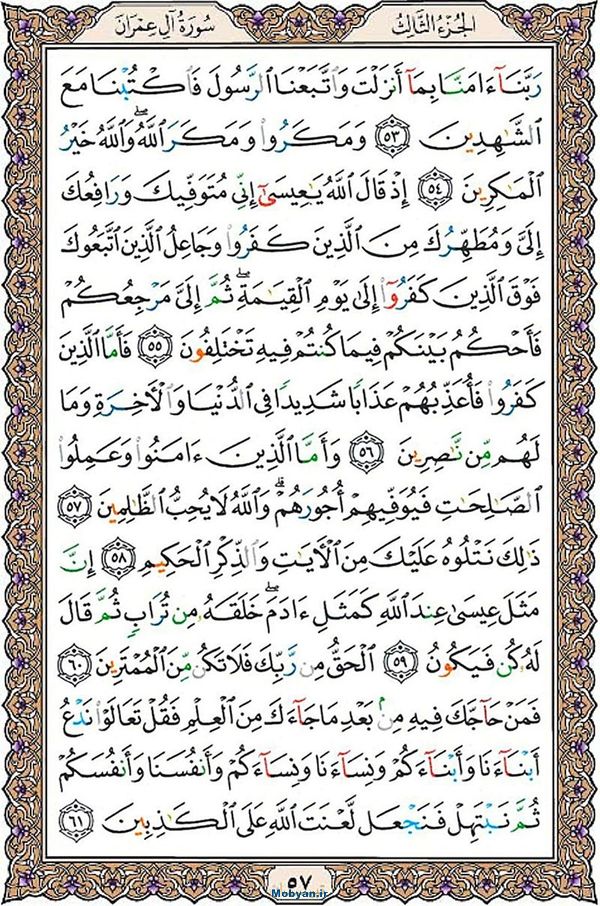 الجُزءُ الثَّالِثُ
سُورَةُ آلِ عِمْرَانَ
رَبَّنَآ ءَامَنَّا بِمَآ أَنزَلْتَ وَٱتَّبَعْنَا ٱلرَّسُولَ فَٱكْتُبْنَا مَعَ
ٱلشَّٰهِدِينَ ٥٣ وَمَكَرُوا۟ وَمَكَرَ ٱللَّهُ ۖ وَٱللَّهُ خَيْرُ
ٱلْمَٰكِرِينَ ٥٤ إِذْ قَالَ ٱللَّهُ يَٰعِيسَىٰٓ إِنِّى مُتَوَفِّيكَ وَرَافِعُكَ
إِلَىَّ وَمُطَهِّرُكَ مِنَ ٱلَّذِينَ كَفَرُوا۟ وَجَاعِلُ ٱلَّذِينَ ٱتَّبَعُوكَ
فَوْقَ ٱلَّذِينَ كَفَرُوٓا۟ إِلَىٰ يَوْمِ ٱلْقِيَٰمَةِ ۖ ثُمَّ إِلَىَّ مَرْجِعُكُمْ
فَأَحْكُمُ بَيْنَكُمْ فِيمَا كُنتُمْ فِيهِ تَخْتَلِفُونَ ٥٥ فَأَمَّا ٱلَّذِينَ
كَفَرُوا۟ فَأُعَذِّبُهُمْ عَذَابًا شَدِيدًا فِى ٱلدُّنْيَا وَٱلْءَاخِرَةِ وَمَا
لَهُم مِّن نَّٰصِرِينَ ٥٦ وَأَمَّا ٱلَّذِينَ ءَامَنُوا۟ وَعَمِلُوا۟
ٱلصَّٰلِحَٰتِ فَيُوَفِّيهِمْ أُجُورَهُمْ ۗ وَٱللَّهُ لَا يُحِبُّ ٱلظَّٰلِمِينَ ٥٧
ذَٰلِكَ نَتْلُوهُ عَلَيْكَ مِنَ ٱلْءَايَٰتِ وَٱلذِّكْرِ ٱلْحَكِيمِ ٥٨ إِنَّ
مَثَلَ عِيسَىٰ عِندَ ٱللَّهِ كَمَثَلِ ءَادَمَ ۖ خَلَقَهُۥ مِن تُرَابٍ ثُمَّ قَالَ
لَهُۥ كُن فَيَكُونُ ٥٩ ٱلْحَقُّ مِن رَّبِّكَ فَلَا تَكُن مِّنَ ٱلْمُمْتَرِينَ ٦٠
فَمَنْ حَآجَّكَ فِيهِ مِنۢ بَعْدِ مَا جَآءَكَ مِنَ ٱلْعِلْمِ فَقُلْ تَعَالَوْا۟ نَدْعُ
أَبْنَآءَنَا وَأَبْنَآءَكُمْ وَنِسَآءَنَا وَنِسَآءَكُمْ وَأَنفُسَنَا وَأَنفُسَكُمْ
ثُمَّ نَبْتَهِلْ فَنَجْعَل لَّعْنَتَ ٱللَّهِ عَلَى ٱلْكَٰذِبِينَ ٦١
٥٧
Mobyan.ir